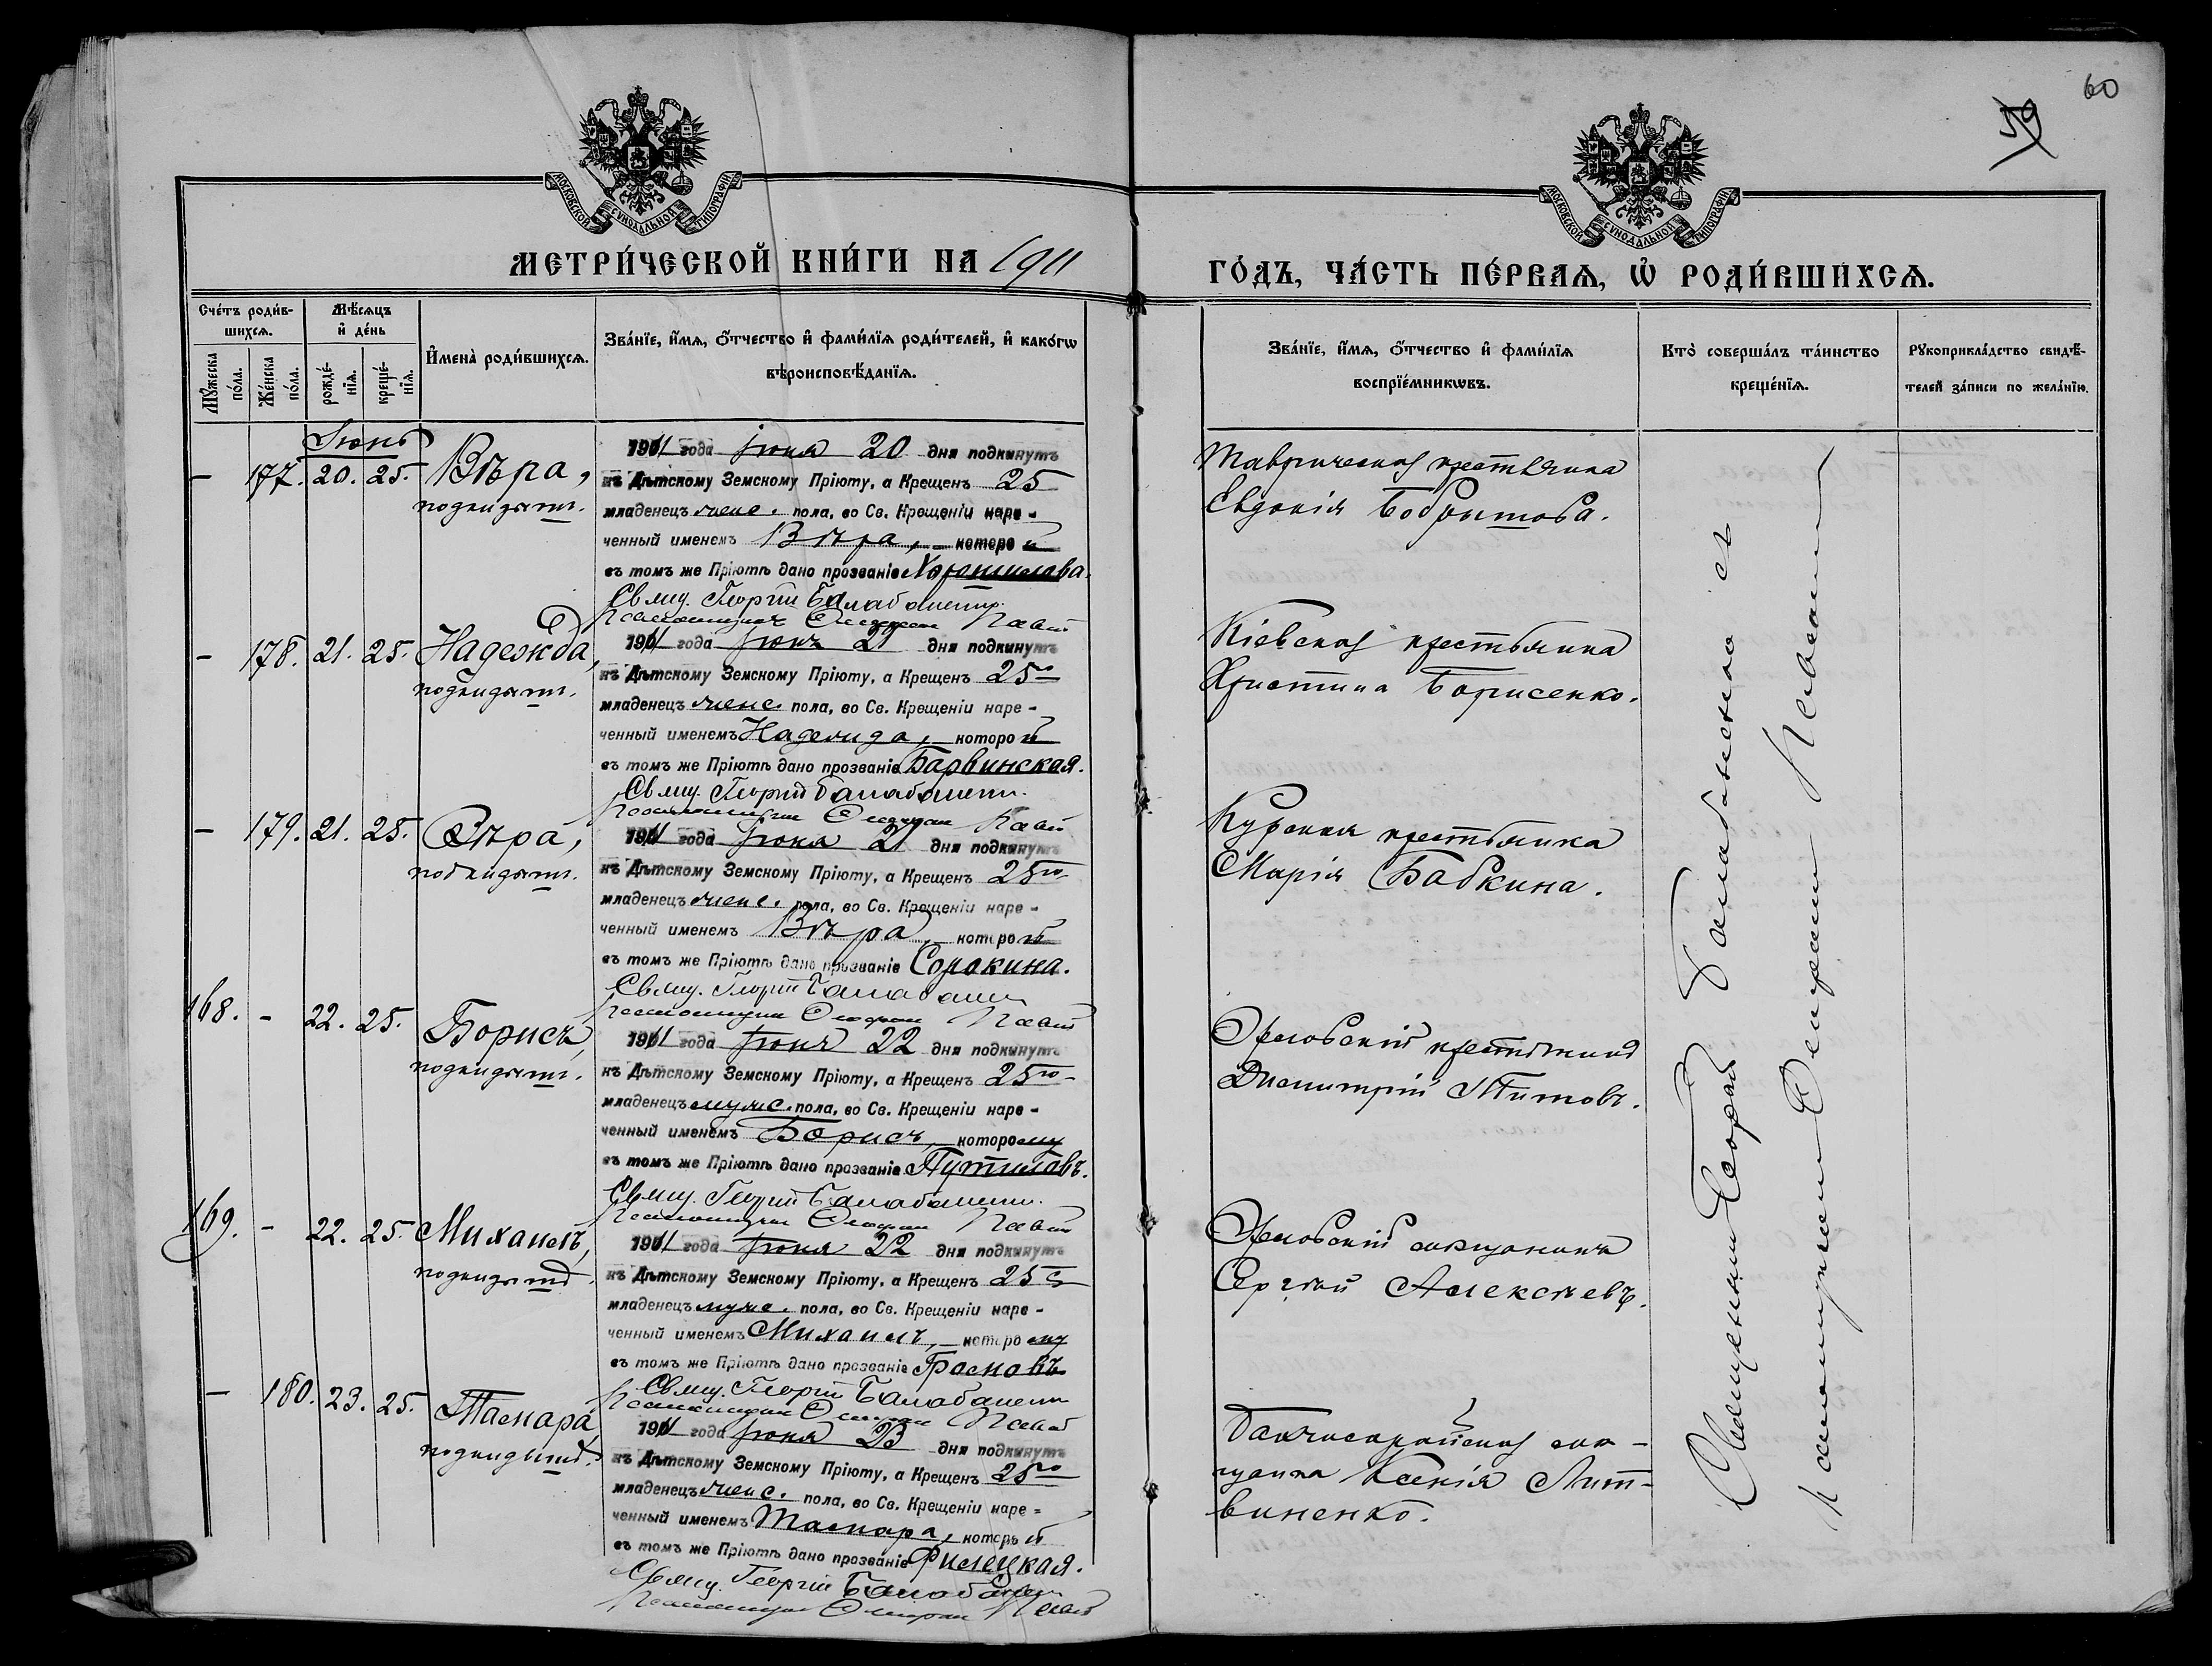 60
59
МОСКОВСКОЙ СѴНОДАЛЬНОЙ ТИПОГРАФІИ
МОСКОВСКОЙ СѴНОДАЛЬНОЙ ТИПОГРАФІИ
МЕТРИ́ЧЕСКОЙ КНИ́ГИ НА 1911
ГО́ДЪ, ЧА́СТЬ ПЕ́РВАѦ, Ѡ҆ РОДИ́ВШИХСѦ.
Сче́тъ роди́в-
шихсѧ.
Мѣ́сѧцъ
и҆ де́нь
Мꙋ́жеска
по́ла.
Же́нска
по́ла.
рожде́-
нїѧ.
креще́-
нїѧ.
И҆мена̀ роди́вшихсѧ.
Зва́нїе, и҆́мѧ, ѻ҆́тчество и҆ фами́лїѧ роди́телей, и҆ како́гѡ
вѣроисповѣ́данїѧ.
Зва́нїе, и҆́мѧ, ѻ҆́тчество и҆ фами́лїѧ
воспрїе́мникѡвъ.
Кто̀ соверша́лъ та́инство
креще́нїѧ.
Рꙋкоприкла́дство свидѣ́-
телей за́писи по жела́нїю.
Іюнь
– 177. 20. 25. Вѣра,
подкидыш.
1911 года іюня 20 дня подкинутъ
къ Дѣтскому Земскому Пріюту, а Крещенъ 25
младенецъ женс. пола, во Св. Крещеніи наре-
ченный именемъ Вѣра, – которой
въ томъ же Пріютѣ дано прозваніе Хорошилова.
Свящ. Георгій Балабаненко
Псаломщикъ
Таврическая крестьянка
Евдокія Бобрышова.
– 178. 21. 25. Надежда,
подкидыш.
1911 года іюня 21 дня подкинутъ
къ Дѣтскому Земскому Пріюту, а Крещенъ 25го
младенецъ женс. пола, во Св. Крещеніи наре-
ченный именемъ Надежда, – которой
въ томъ же Пріютѣ дано прозваніе Барвинская.
Свящ. Георгій Балабаненко
Псаломщикъ
Кіевская крестьянка
Христина Борисенко.
– 179. 21. 25. Вѣра,
подкидыш.
1911 года іюня 21 дня подкинутъ
къ Дѣтскому Земскому Пріюту, а Крещенъ 25го
младенецъ женс. пола, во Св. Крещеніи наре-
ченный именемъ Вѣра, – которой
въ томъ же Пріютѣ дано прозваніе Сорокина.
Свящ. Георгій Балабаненко
Псаломщикъ
Курская крестьянка
Марія Бабкина.
168. – 22. 25. Борисъ,
подкидыш.
1911 года іюня 22 дня подкинутъ
къ Дѣтскому Земскому Пріюту, а Крещенъ 25го
младенецъ мужс. пола, во Св. Крещеніи наре-
ченный именемъ Борисъ, которому
въ томъ же Пріютѣ дано прозваніе Путиловъ.
Свящ. Георгій Балабаненко
Псаломщикъ
Орловскій крестьянинъ
Димитрій Титовъ.
169. – 22. 25. Михаилъ,
подкидышъ.
1911 года іюня 22 дня подкинутъ
къ Дѣтскому Земскому Пріюту, а Крещенъ 25
младенецъ мужс. пола, во Св. Крещеніи наре-
ченный именемъ Михаилъ, – которому
въ томъ же Пріютѣ дано прозваніе Громовъ
Свящ. Георгій Балабаненко
Псаломщикъ
Орловскій мѣщанинъ
Сергѣй Алексѣевъ.
– 180. 23. 25. Тамара,
подкидышъ.
1911 года іюня 23 дня подкинутъ
къ Дѣтскому Земскому Пріюту, а Крещенъ 25го
младенецъ женс. пола, во Св. Крещеніи наре-
ченный именемъ Тамара, которой
въ томъ же Пріютѣ дано прозваніе Филецкая.
Свящ. Георгій Балабаненко
Псаломщикъ
Бахчисарайская мѣ-
щанка Ксенія Лит-
виненко.
Священникъ Георгій Балабаненко съ
псаломщикомъ